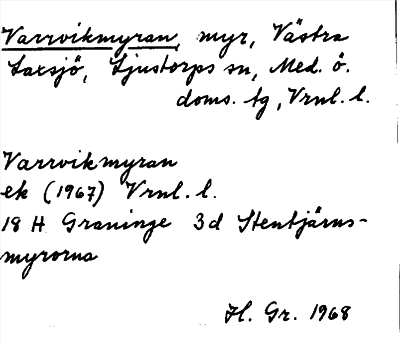 Varrvikmyran, myr, Västra
Laxsjö, Ljustorps sn, Med. ö.
doms. tg, Vrnl. l.
Varrvikmyran
ek (1967) Vrnl. l.
18 H Graninge 3d Stentjärns-
myrorna
H. Gr. 1968